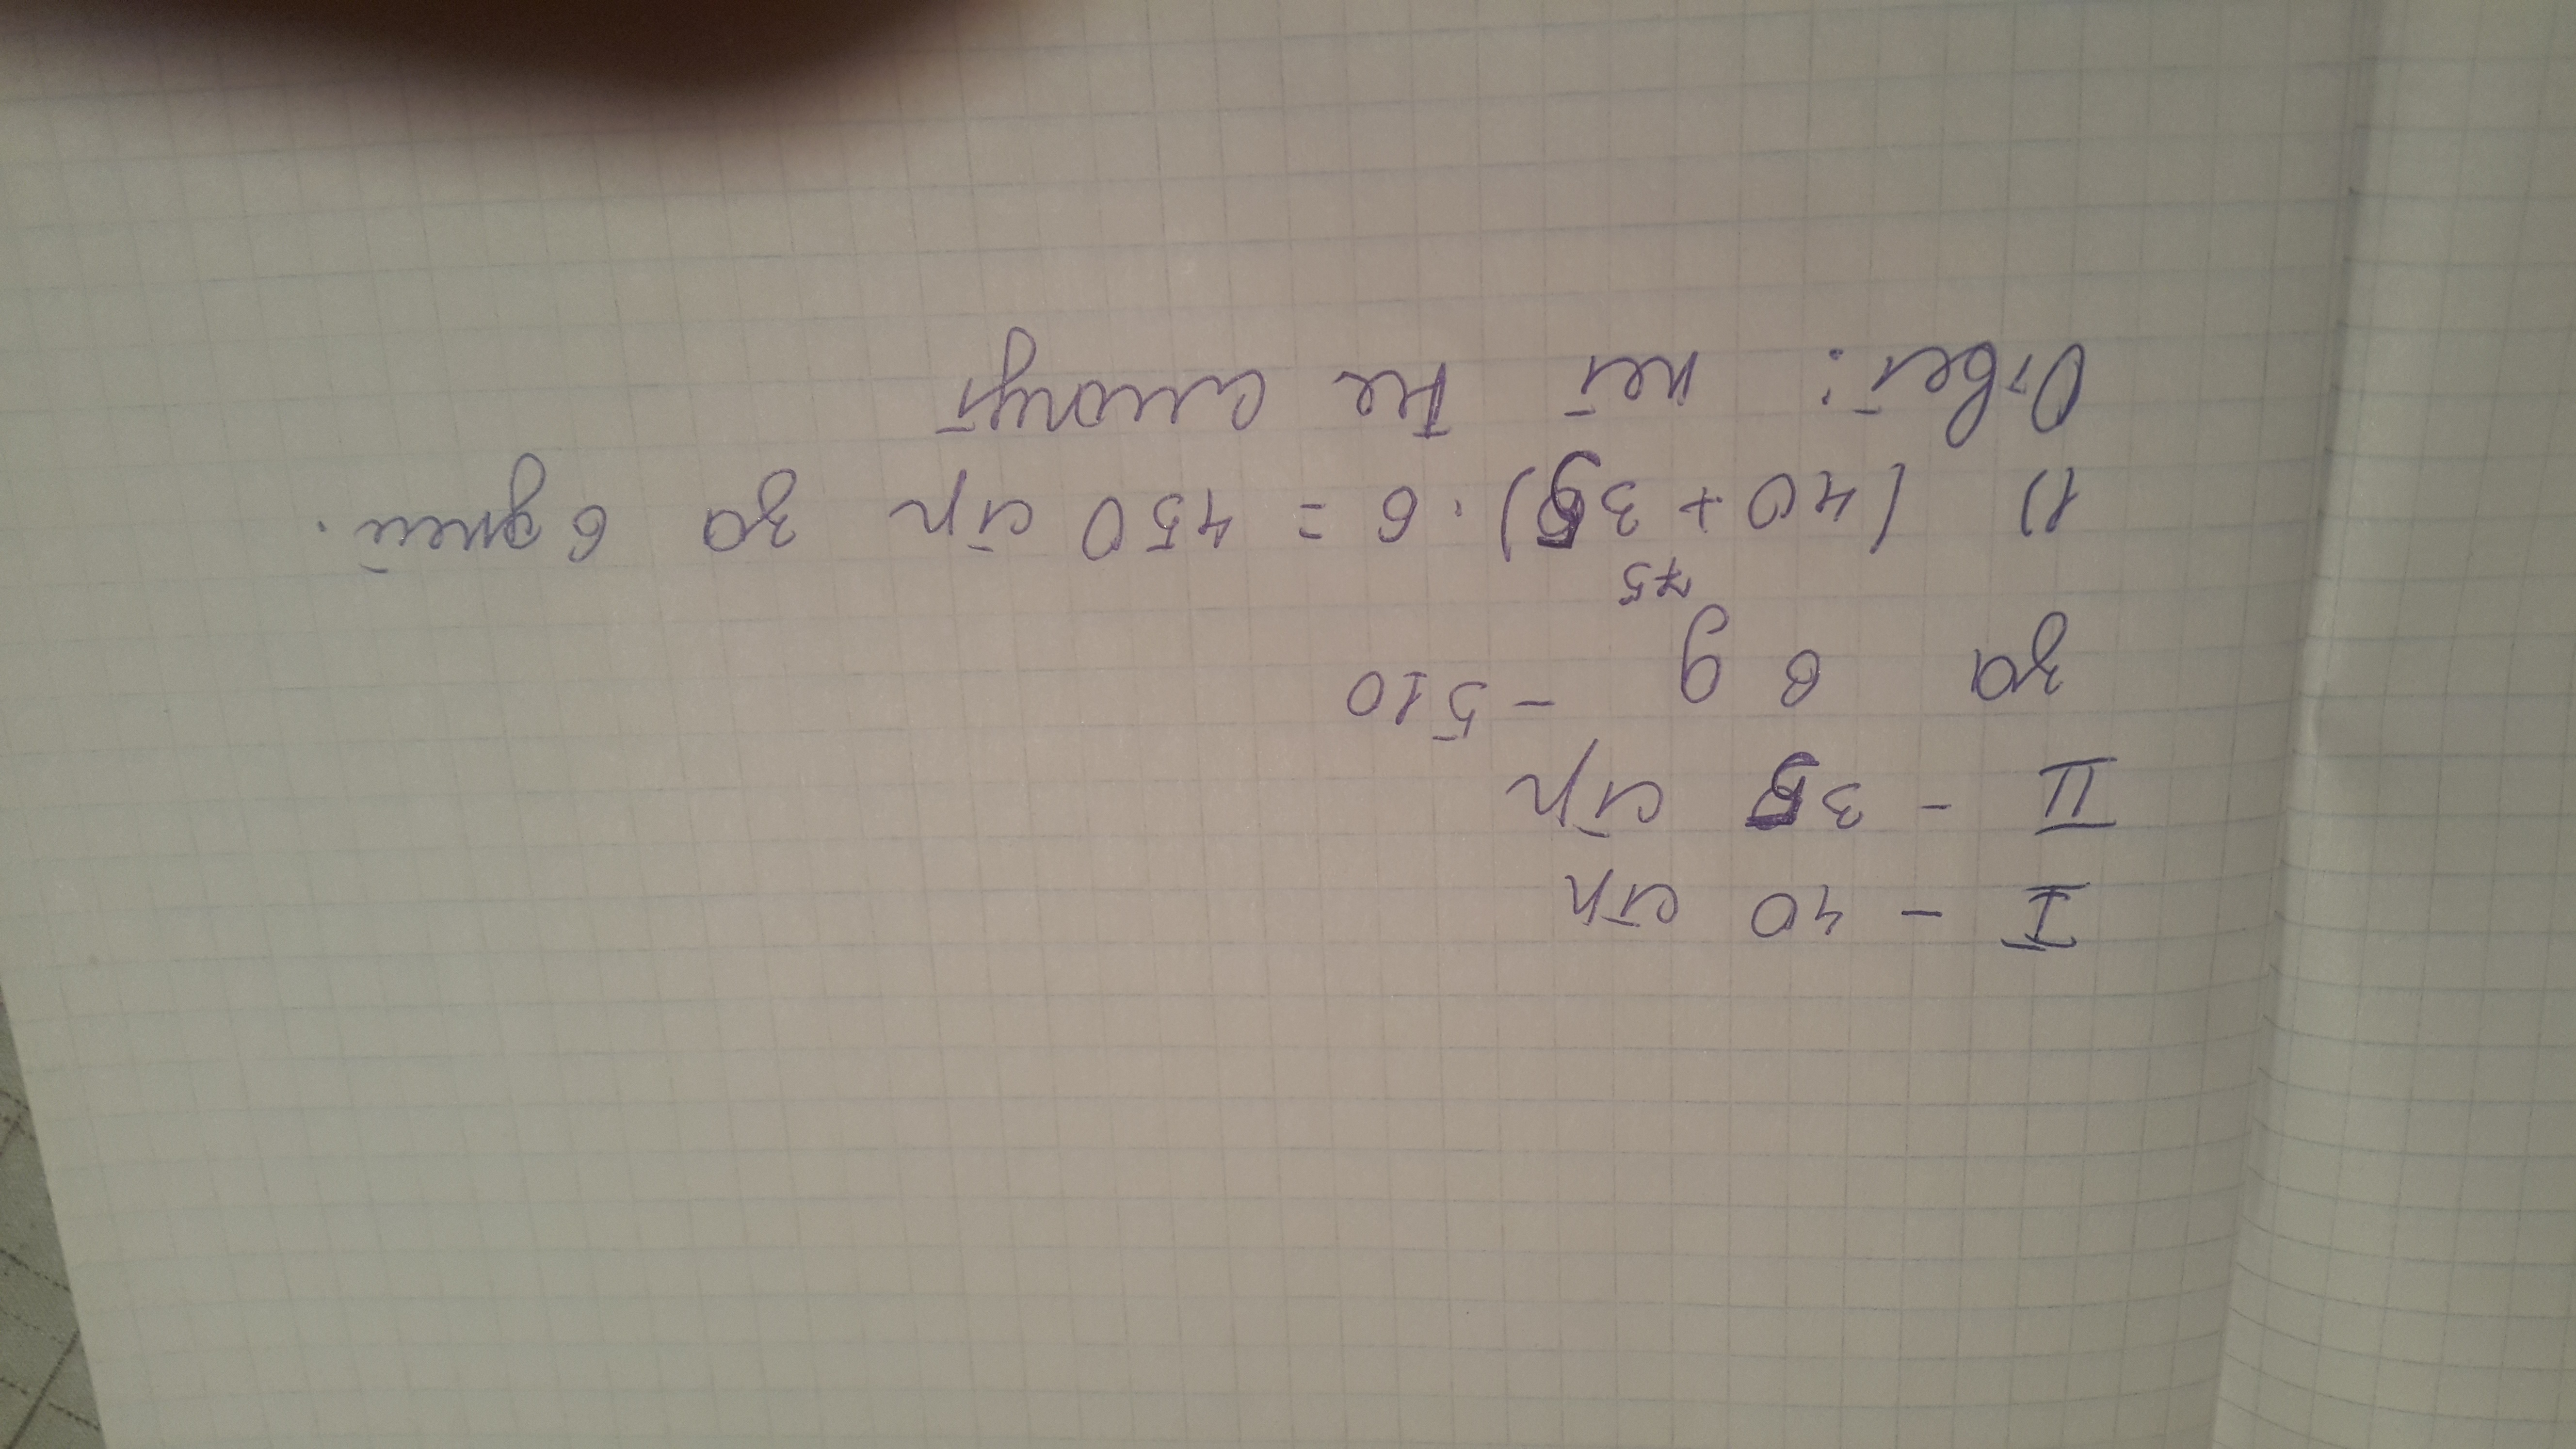 I - 40 стр
II - 35 стр
за 6 д - 510
75
1) (40 + 35) · 6 = 450 стр за 6 дней.
Ответ: нет не смогут